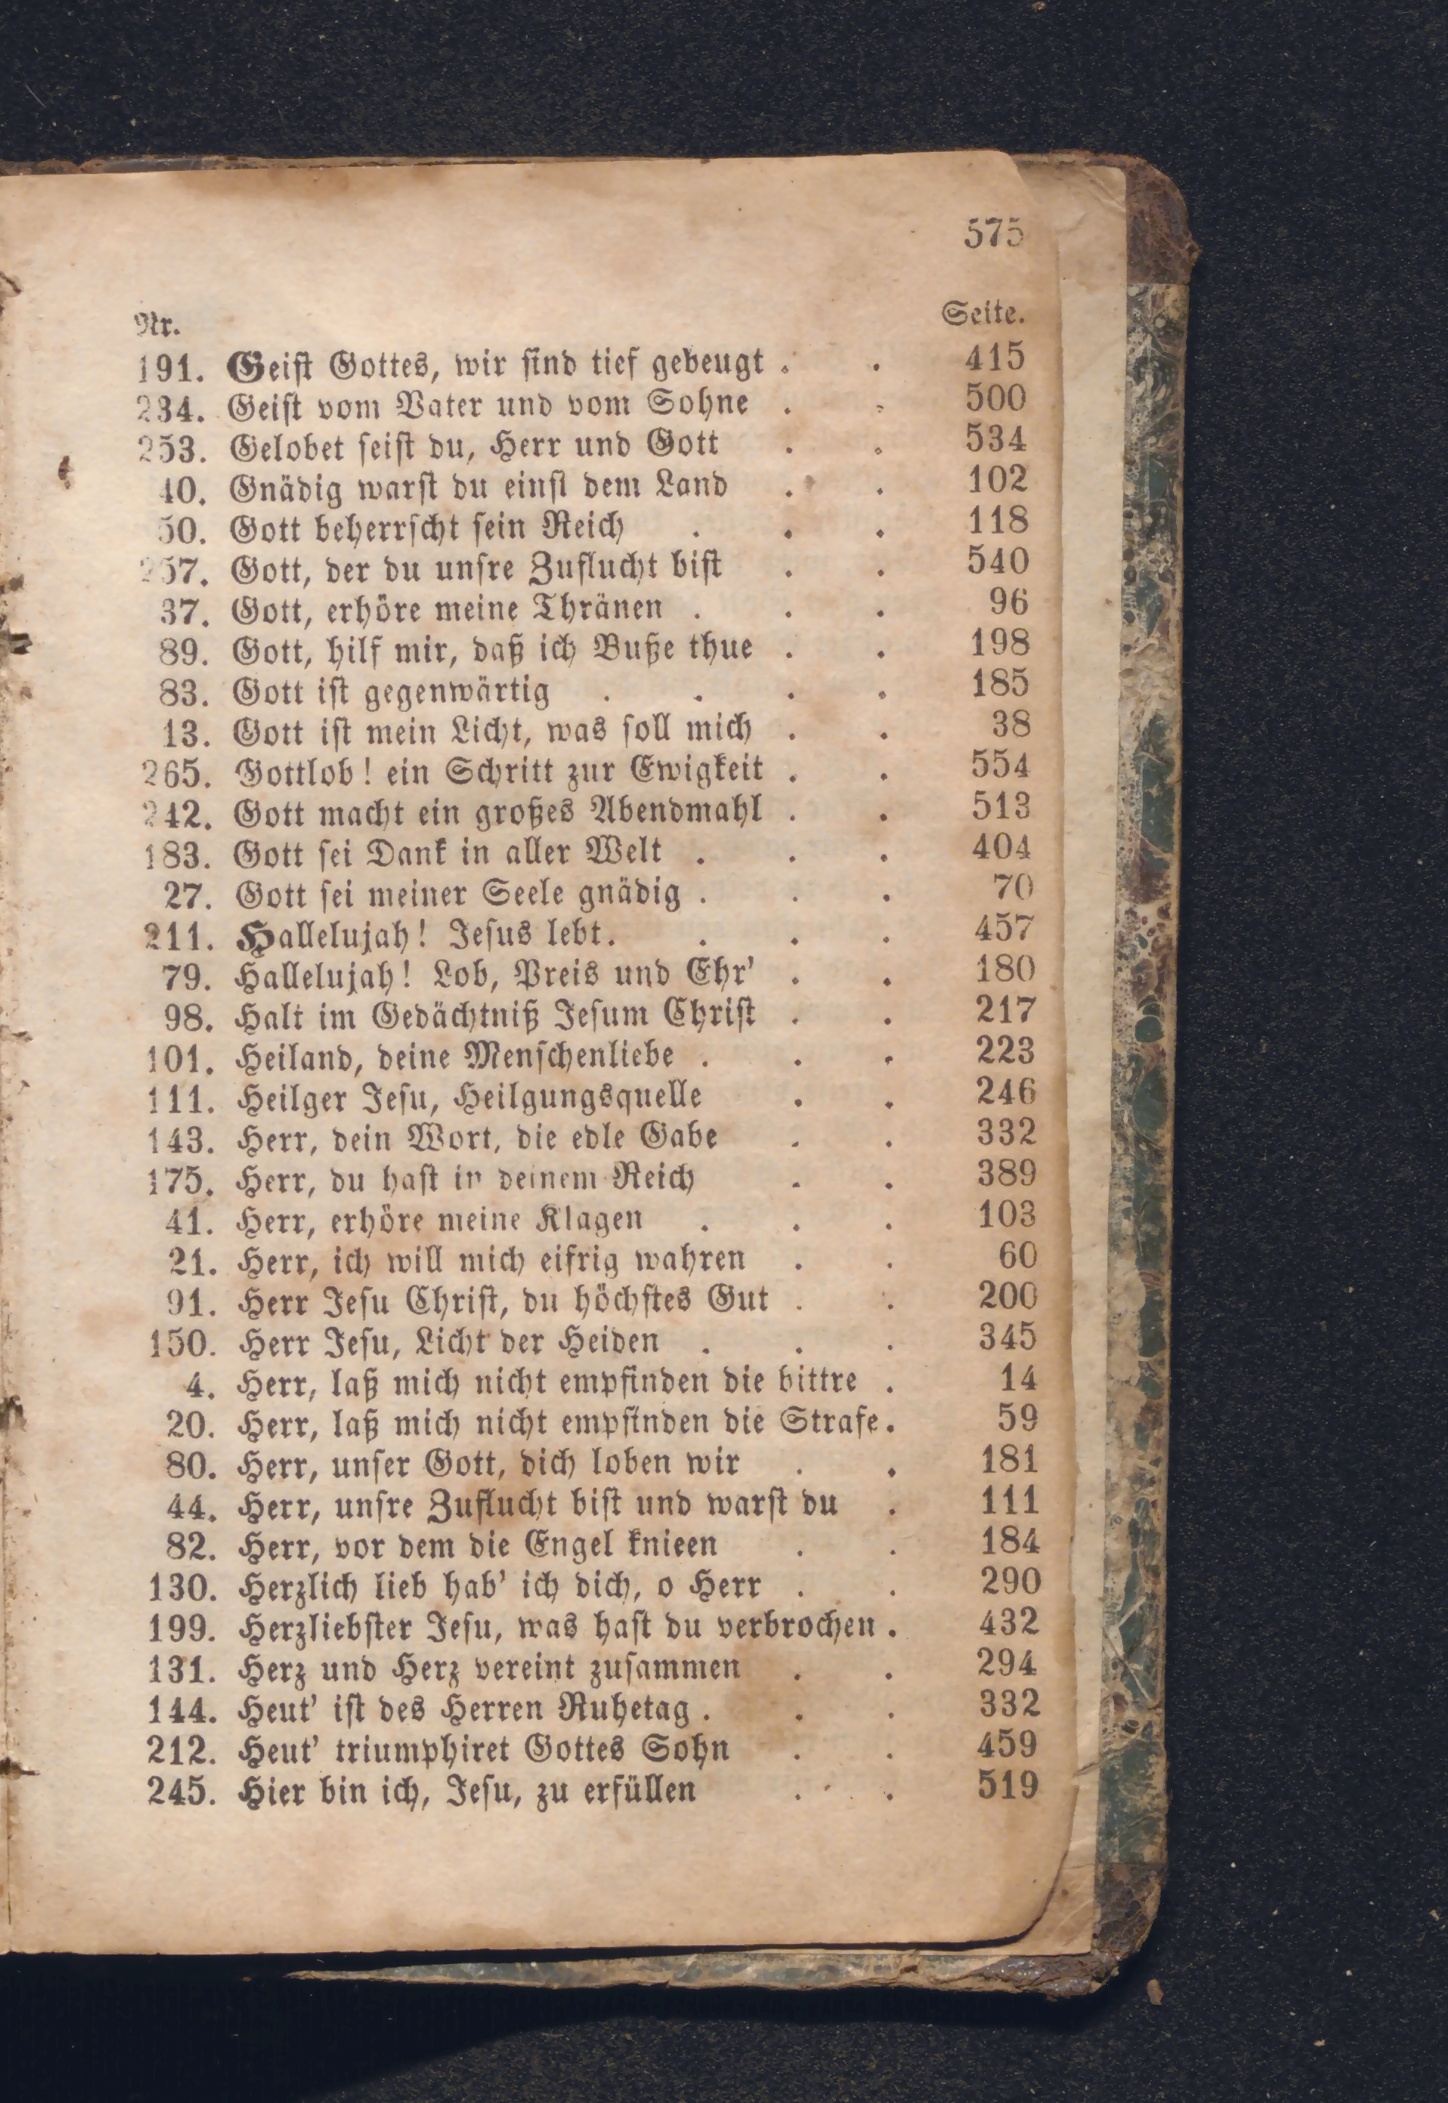 575
Nr. Seite.
191. Geist Gottes, wir sind tief gebeugt . . 415
234. Geist vom Vater und vom Sohne . . 500
253. Gelobet seist du, Herr und Gott . . 534
40. Gnädig warst du einst dem Land . . 102
50. Gott beherrscht sein Reich . . . 118
257. Gott, der du unsre Zuflucht bist . . 540
37. Gott, erhöre meine Thränen . . . 96
89. Gott, hilf mir, daß ich Buße thue . . 198
83. Gott ist gegenwärtig . . . . 185
13. Gott ist mein Licht, was soll mich . . 38
265. Gottlob! ein Schritt zur Ewigkeit . . 554
242. Gott macht ein großes Abendmahl . . 513
183. Gott sei Dank in aller Welt . . . 404
27. Gott sei meiner Seele gnädig . . . 70
211. Hallelujah! Jesus lebt. . . . 457
79. Hallelujah! Lob, Preis und Ehr' . . 180
98. Halt im Gedächtniß Jesum Christ . . 217
101. Heiland, deine Menschenliebe . . . 223
111. Heilger Jesu, Heilgungsquelle . . 246
143. Herr, dein Wort, die edle Gabe . . 332
175. Herr, du hast in deinem Reich . . 389
41. Herr, erhöre meine Klagen . . . 103
21. Herr, ich will mich eifrig wahren . . 60
91. Herr Jesu Christ, du höchstes Gut . . 200
150. Herr Jesu, Licht der Heiden . . . 345
4. Herr, laß mich nicht empfinden die bittre . 14
20. Herr, laß mich nicht empfinden die Strafe. 59
80. Herr, unser Gott, dich loben wir . . 181
44. Herr, unsre Zuflucht bist und warst du . 111
82. Herr, vor dem die Engel knieen . . 184
130. Herzlich lieb hab' ich dich, o Herr . . 290
199. Herzliebster Jesu, was hast du verbrochen . 432
131. Herz und Herz vereint zusammen . . 294
144. Heut' ist des Herren Ruhetag . . . 332
212. Heut' triumphiret Gottes Sohn . . 459
245. Hier bin ich, Jesu, zu erfüllen . . 519